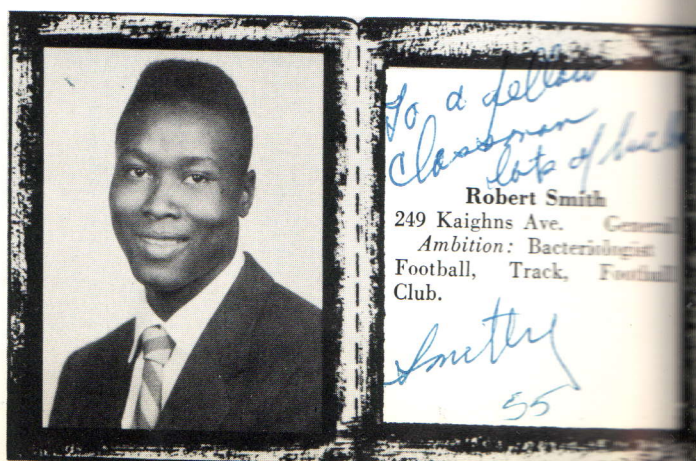 To a fellow
Classman
lots of luck
Robert Smith
249 Kaighns Ave. General
Ambition: Bacteriologist
Football, Track, Football
Club.
Smitty
55